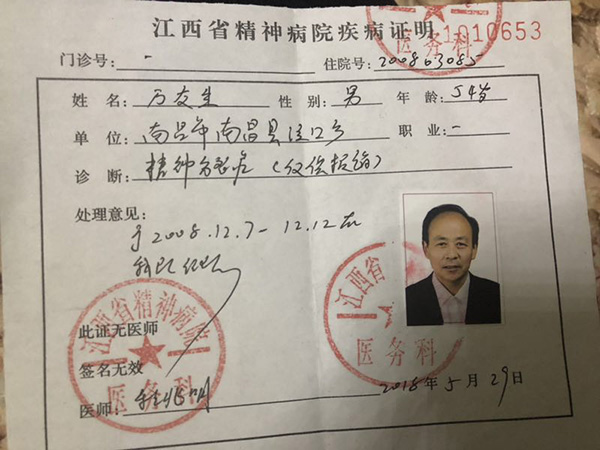 江西省精神病院疾病证明
1010653
门诊号: - 住院号: 200863085
姓 名: 万友生 性 别: 男 年 龄: 54岁
单 位: 南昌市南昌县泾口乡 职 业: -
诊 断: 精神分裂症(仅供报销)
处理意见:
于2008.12.7-12.12在
我院
此证无医师
签名无效
医师:
2018年5月29日
江西省
医务科
江西省精神病院
医务科
医务科